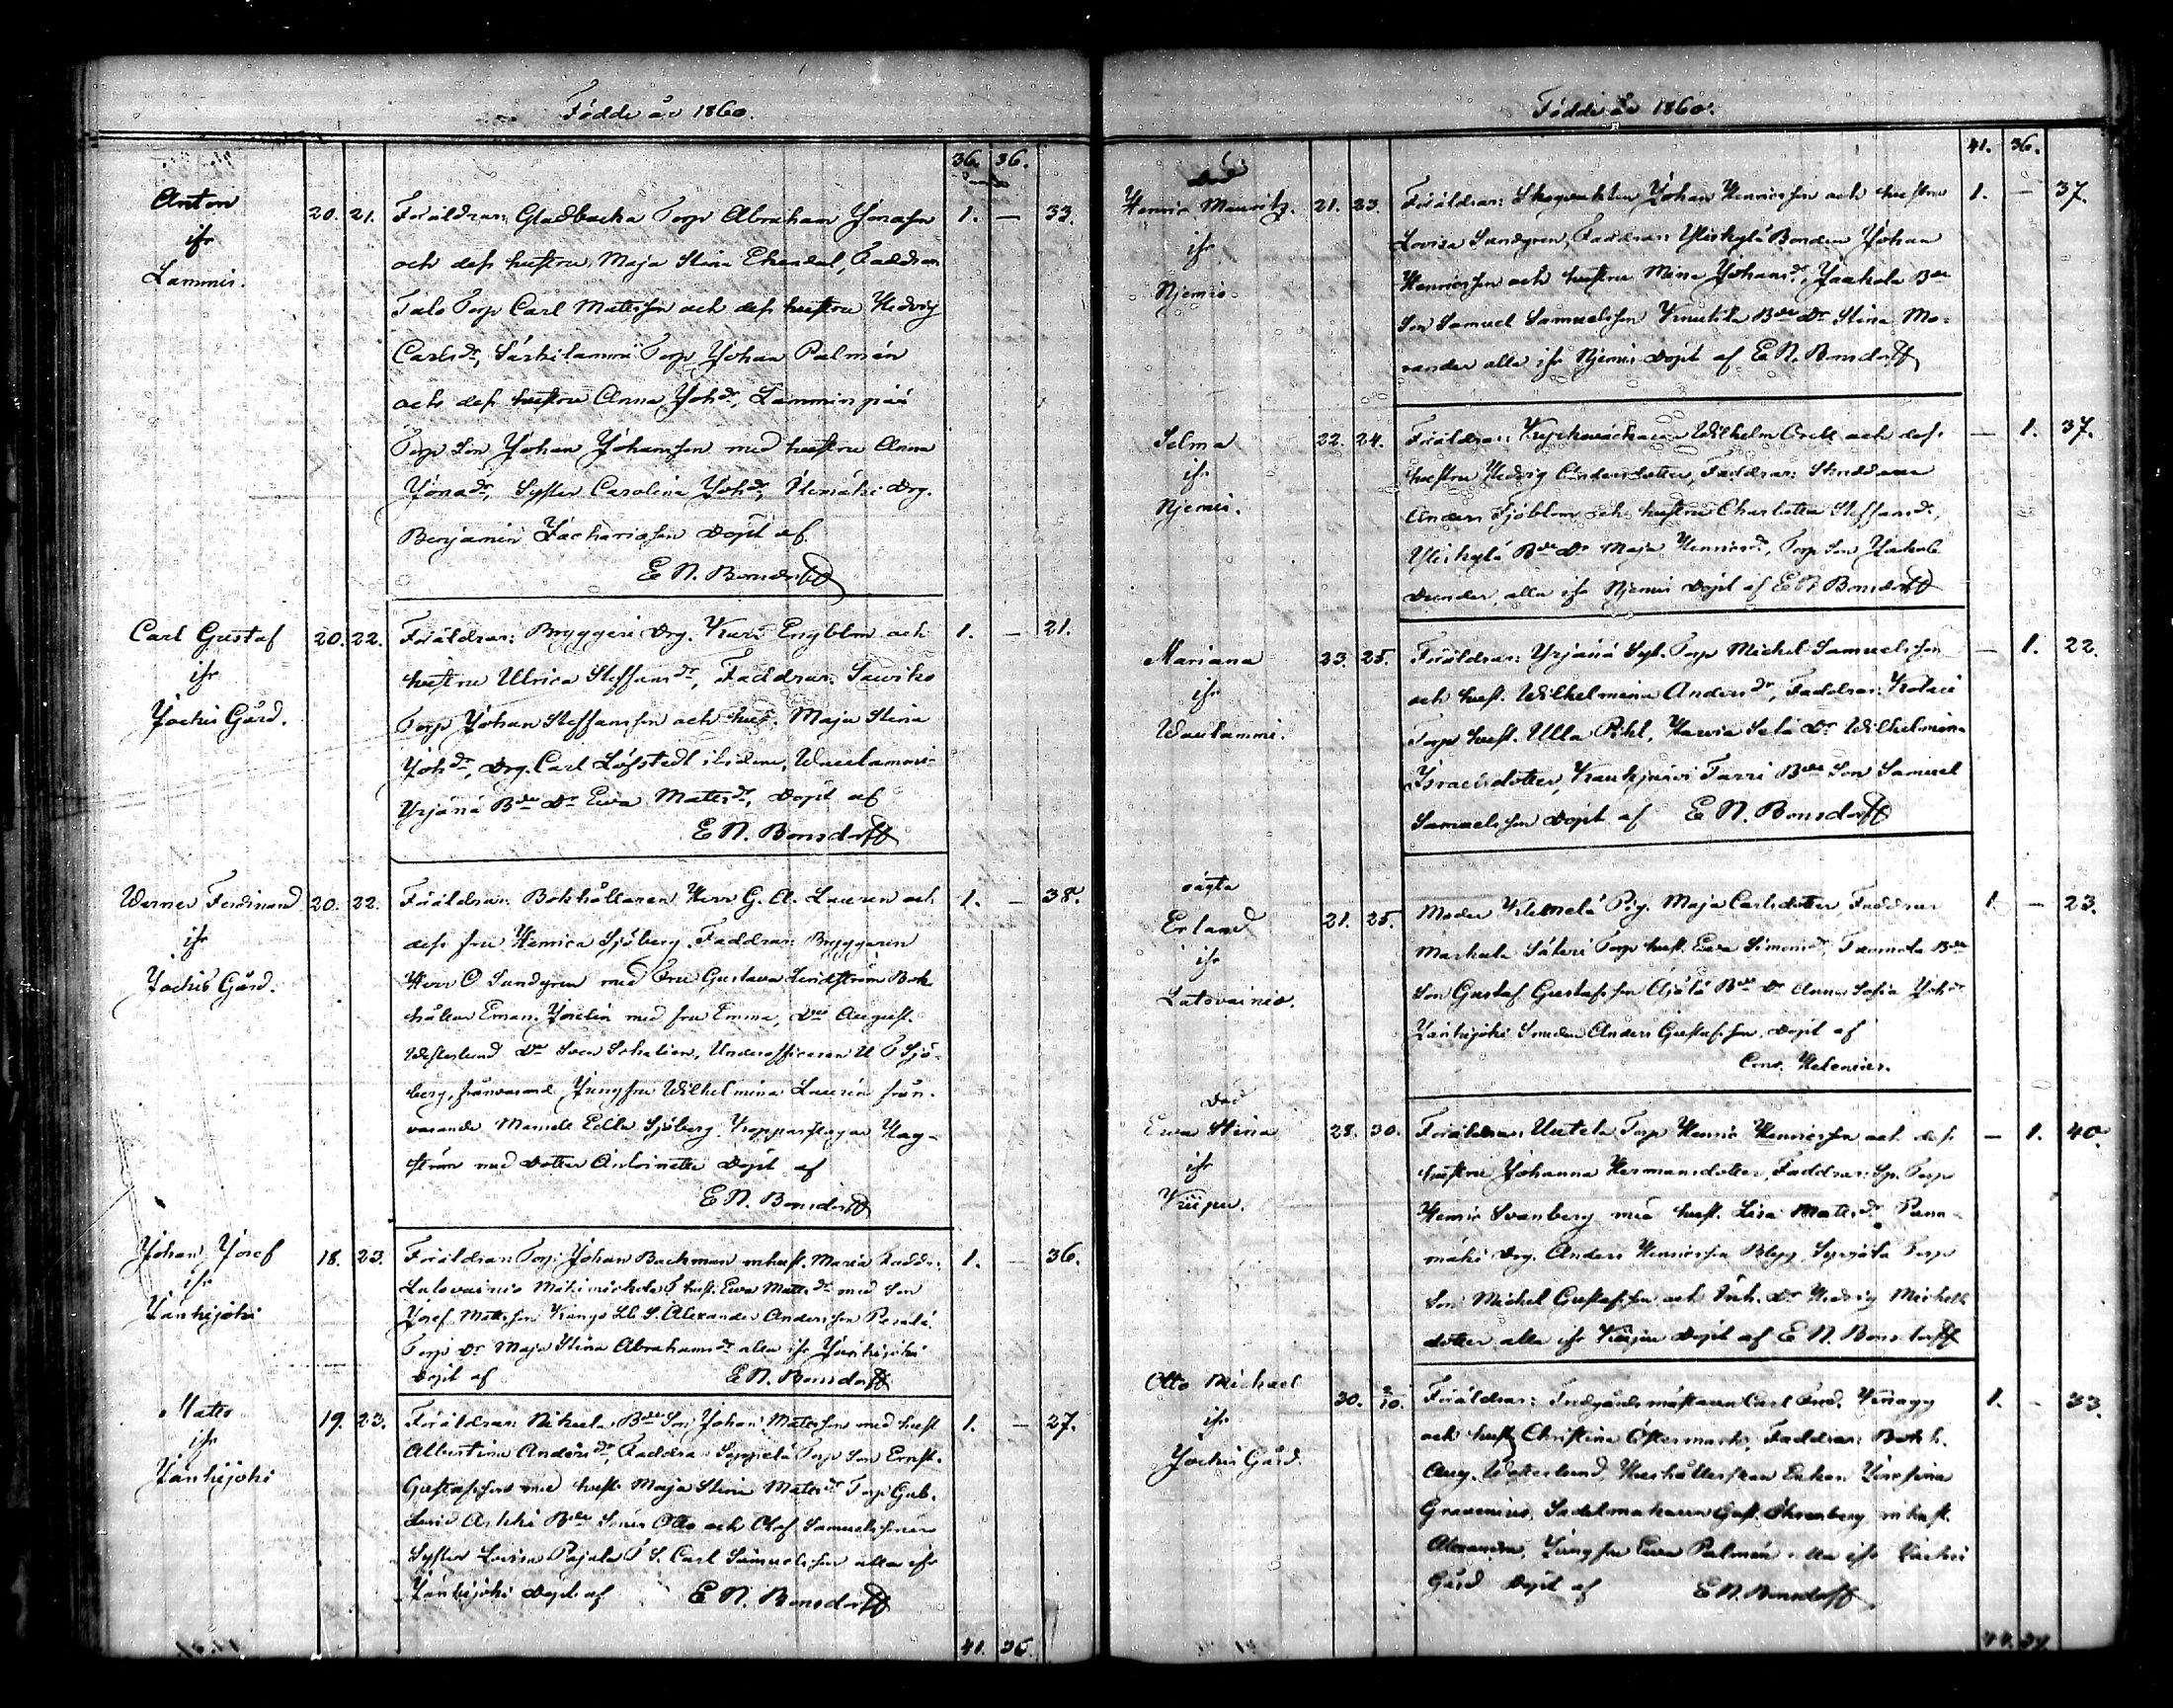 Födde år 1860.
36. 36.
Anton
ifr
Lammis.
20. 21.
Föräldrar: Gladbacka Torp Abraham Jonasson
och dess hustru Maja Stina Ekendal, Faddrar
Talo Torp Carl Mattsson och dess hustru Hedvig
Carlsdr, Särkilammi Torp Johan Palmén
och dess hustru Anna Johdr, Lamminpää
Torp Son Johan Johansson med hustru Anna
Jonadr, Syster Carolina Johdr, Drg.
Benjamin Zachariasson Döpt af
E N. Bonsdorff
1. — 33.
Carl Gustaf
ifr
Jockis Gård.
20. 22.
Föräldrar: Bryggeri Drg. Karl Engblom och
hustru Ulrica Steffansdr, Faddrar: Sauriko
Torp Johan Steffansson och hust. Maja Stina
Johdr, Drg. Carl Löfstedt ibidem, Waulammi
Yrjänä Bde Dr Ewa Mattsdr, Döpt af
E N. Bonsdorff
1. — 21.
Werner Ferdinand
ifr
Jockis Gård.
20. 22.
Föräldrar: Bokhållaren Herr G. A. Lauren och
dess fru Henrica Sjöberg. Faddrar: Bryggaren
Herr O Sundgren med Fru Gustava Lindström Bok
hållar Eman. med fru Emma, Dito August.
Westerlund Do Sven Underofficeren U F Sjö-
berg, frånvarand Jungfru Wilhelmina Laurén från-
varande Mamsell Edla Sjöberg Kopparslagar Hag-
ström med dotter Antoinette Döpt af
E N. Bonsdorff
1. — 38.
Johan Josef
ifr
Jänhijoki
18. 23.
Föräldrar: Torp: Johan Backman m hust. Maria Faddr:
Latovainio T hust. Ewa Mattsdr med Son
Josef Mattsson S. Alexander Andersson
Torp Dr Maja Stina Abrahamsdr alla ifr Jänhijoki
Döpt af E N. Bonsdorff
1. — 36.
Matts
ifr
Jänhijoki
19. 23.
Föräldrar: Nikula Bde Son Johan Mattsson med hust
Albertina Andersdr, Faddrar: Seppälä Torp Son Ernst.
Gustafsson med hust. Maja Stina Mattsdr Torp Gub.
Bde Söner Otto och Olof Samuelssöner
Syster Lovisa Pajula T S. Carl Samuelsson alla ifr
Jänhijoki Döpt af E N. Bonsdorff
1. — 27.
41. 36.
Födde år 1860.
41. 36.
död
Henric Mauritz.
ifr
Njemis
21. 23.
Föräldrar: Skogvakten Johan Henricsson och hustru
Lovisa Sundgren, Faddrar: Yliskylä Bonden Johan
Henricsson och hustru Mina Johansdr, Jaakola Bde
Son Samuel Samuelsson Knutila Bde Dr Stina Mo-
rander alla ifr Njemis Döpt af E N. Bonsdorff
1. — 37.
Selma
ifr
Njemis.
22. 24.
Föräldrar: Wilhelm och dess
hustru Hedvig Andersdotter, Faddrar:
Anders Sjöblom och hustru Charlotta Steffansdr,
Yliskylä Bde Dr Maja Henricsdr, Torp Son Jakob
alla ifr Njemis Döpt af E N Bonsdorff
— 1. 37.
Mariana
ifr
Waulammi.
23. 25.
Föräldrar: Yrjänä Syt. Torp Michel Samuelsson
och hust. Wilhelmina Andersdr, Faddrar:
Torp hust. Ulla Pihl, Dr Wilhelmina
Israelsdotter, Kaukjärvi Torri Bde Son Samuel
Samuelsson Döpt af E N. Bonsdorff
— 1. 22.
oägta
Erland
ifr
Latovainio.
21. 25.
Moder Pig. Maja Carlsdotter, Faddrar
Markula Säteri Torp hust. Ewa Simonsdr, Tammela Bde
Son Gustaf Gustafsson Äjälä Bde Dr Anna Sofia Johdr
Jänhijoki Smeden Anders Gustafsson, Döpt af
Cons. Helenius.
1. — 23.
död
Ewa Stina
ifr
Kiipu.
28. 30.
Föräldrar: Uutela Torp Henric Henricsson och dess
hustru Johanna Hermansdotter, Faddrar: Torp
Henric Svanberg med hust. Lisa Mattsdr
mäki Drg. Anders Henricsson Torp
Son Michel Gustafsson och Dr Hedvig Michels
dotter alla ifr Kiipu Döpt af E N. Bonsdorff
— 1. 40
Otto Michael
ifr
Jockis Gård.
30. 2/10.
Föräldrar: Trädgårdsmästaren Carl Fred.
och hust Christina Östermark, Faddrar: Bokh.
Aug. Westerlund, Hushållerskan Enkan Josefina
Gravenius, Sadelmakaren Gust. Öhrenberg m hust.
Alexandra, Jungfru Ewa Palmén alla ifr Jockis
Gård Döpt af E N. Bonsdorff
1. — 33.